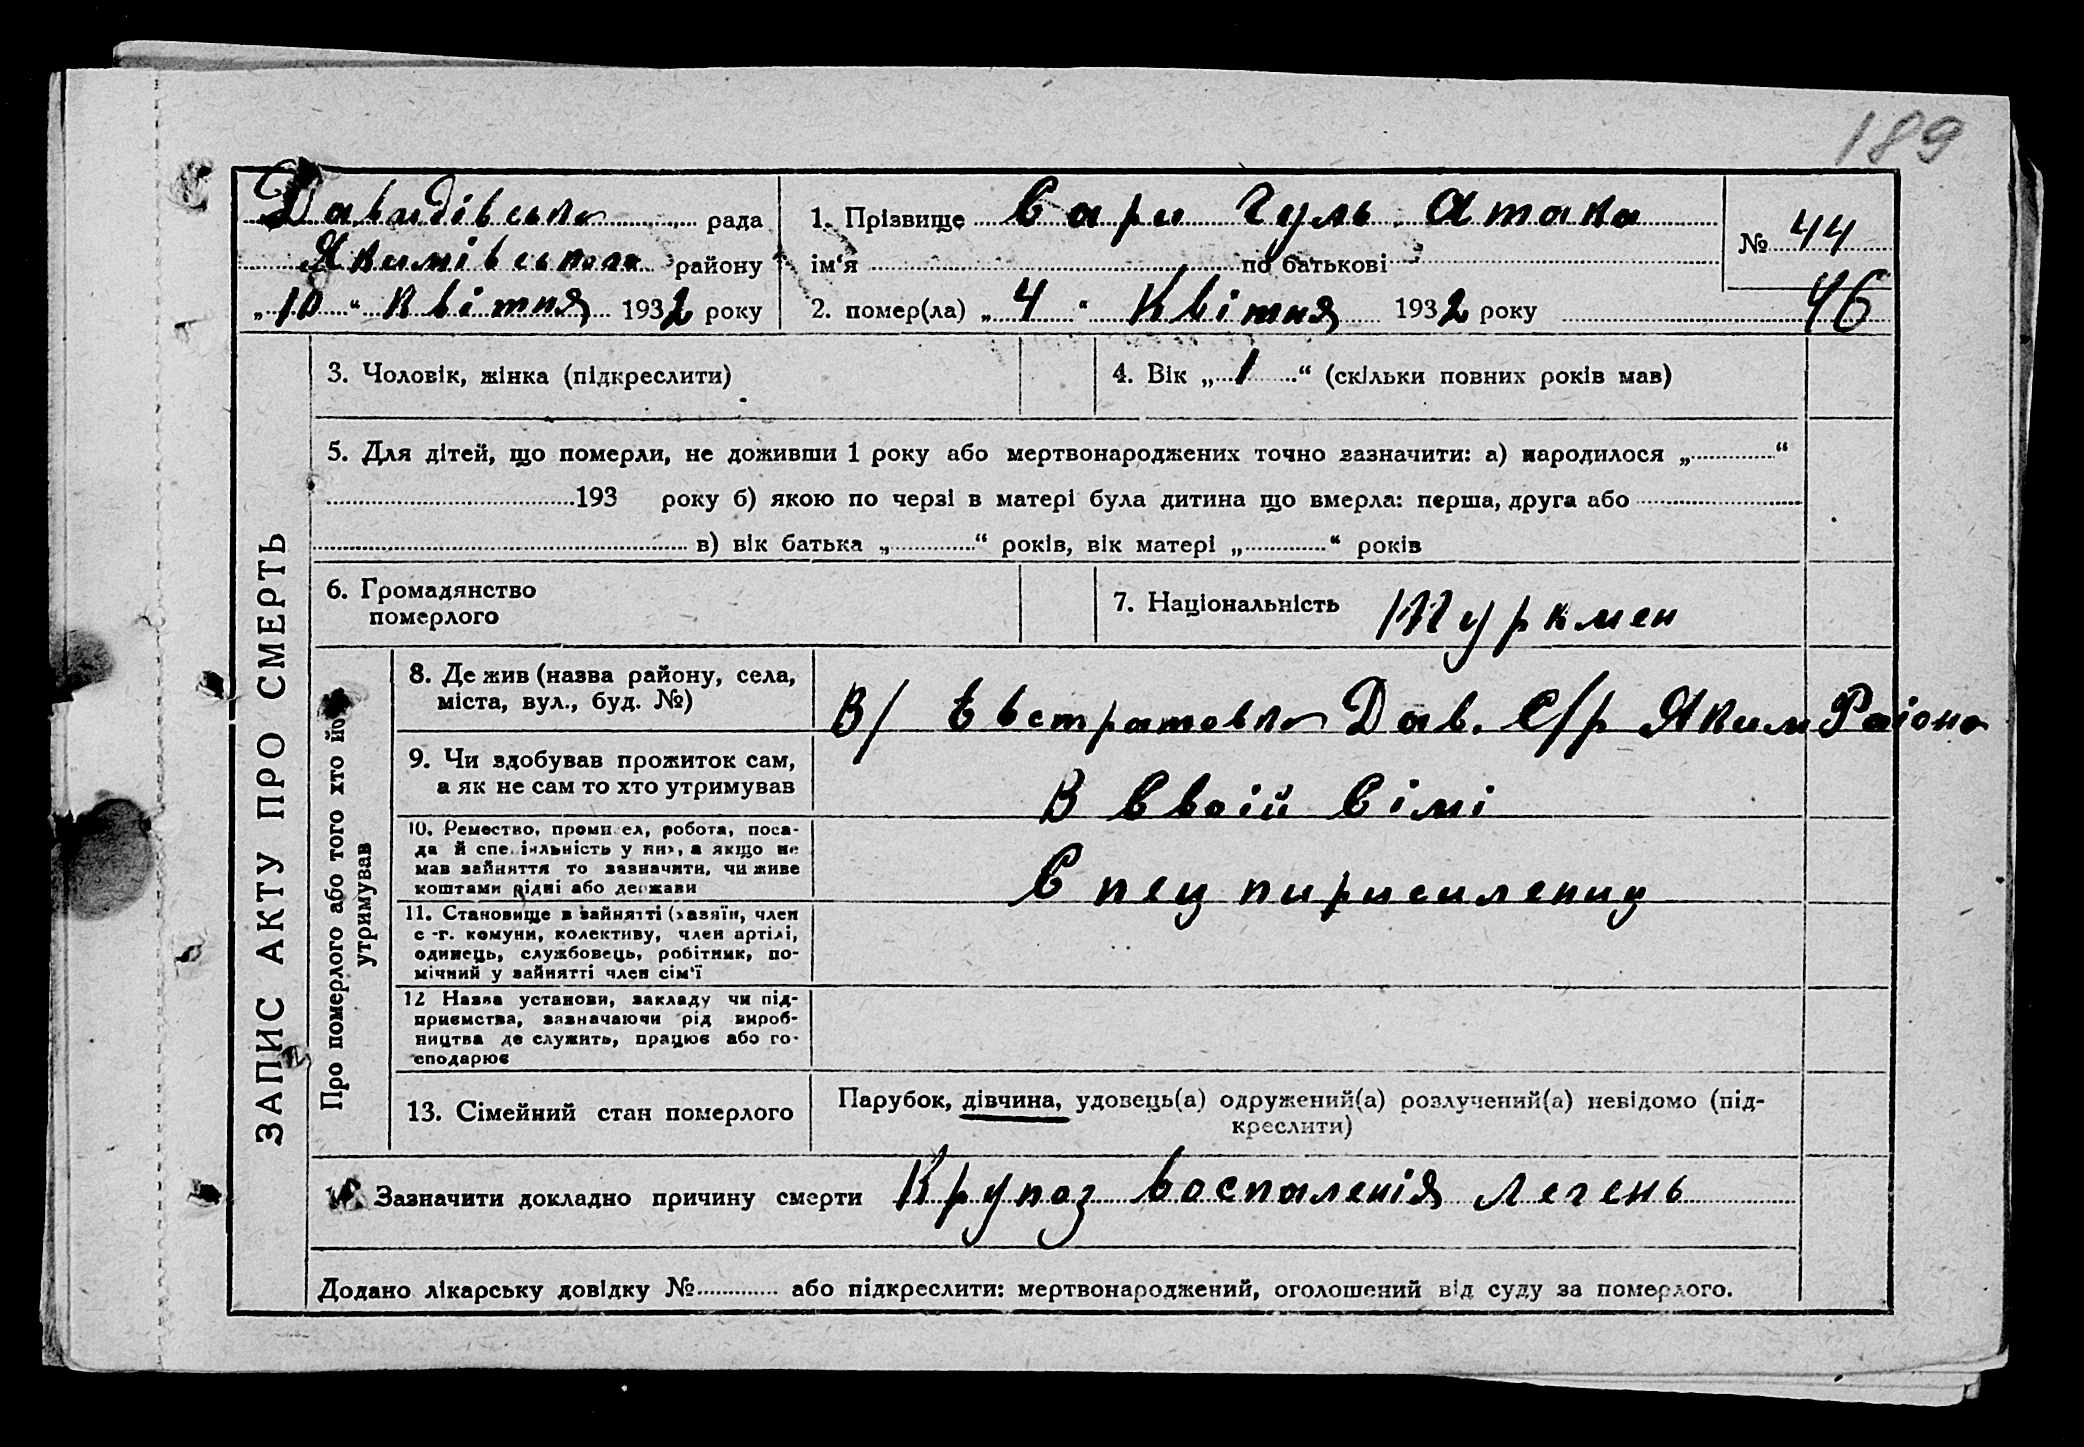 189
Давидівська рада
Якимівського району
„10“ Квітня 1932 року
1. Прізвище Сари Гуль Атака
ім‘я по батькові
№ 44
2. помер(ла) „4“ Квітня 1932 року 46
ЗАПИС АКТУ ПРО СМЕРТЬ
3. Чоловік, жінка (підкреслити)
4. Вік „1“ (скільки повних років мав)
5. Для дітей, що померли, не доживши 1 року або мертвонароджених точно зазначити: а) народилося „ “
193 року б) якою по черзі в матері була дитина що вмерла: перша, друга або
в) вік батька „ “ років, вік матері „ “ років
6. Громадянство
померлого
7. Національність Туркмен
Про померлого або того хто його
утримував
8. Де жив (назва району, села,
міста, вул., буд. №)
В/ Евстратовка Дав. С/р Яким Раіона
9. Чи здобував прожиток сам,
а як не сам то хто утримував
В Своій Сімі
10. Ремество, промисел, робота, поса-
да й спеціяльність у них, а якщо не
мав зайняття то зазначити, чи живе
коштами рідні або держави
Спец пириселениц
11. Становище в зайнятті (хазяїн, член
с-г. комуни, колективу, член артілі,
одинець, службовець, робітник, по-
мічний у зайнятті член сім‘ї
12 Назва установи, закладу чи під-
приємства, зазначаючи рід вироб-
ництва де служить, працює або го-
сподарює
13. Сімейний стан померлого
Парубок, дівчина, удовець(а) одружений(а) розлучений(а) невідомо (під-
креслити)
14. Зазначити докладно причину смерти Крупоз воспаленія легень
Додано лікарську довідку № або підкреслити: мертвонароджений, оголошений від суду за померлого.